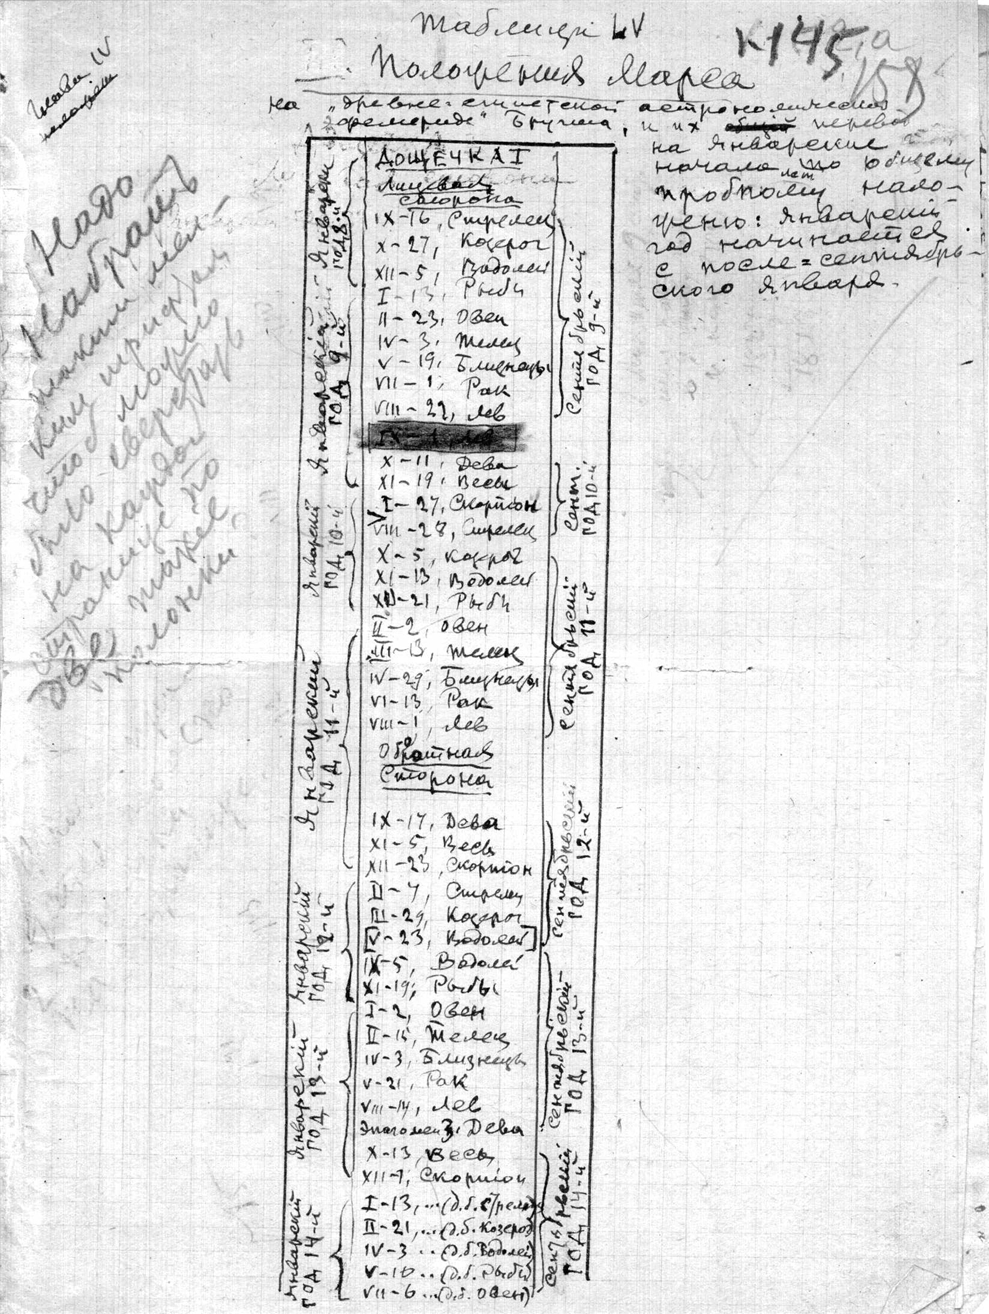 Таблица LV
К 145
158
Глава IV
Положения Марса
на "древне-египетской астрономической
эфемериде" Бругша, и их перевод
на январские
начала лет по общему
пробному нало-
жению: Январский
год начинается
с после=сентябрь-
ского января.
Надо
набрать
таким мел-
ким шрифтом
чтоб можно
было сверстать
на каждой
странице по
две такие
колонки
ДОЩЕЧКА I
Лицевая
сторона
IX-16, Стрелец
X-27, Козерог
XII-5, Водолей
I-13, Рыбы
II-23, Овен
IV-3, Телец
V-19, Близнецы
VII-1, Рак
VIII-22, Лев
X-11, Дева
XI-19, Весы
I-27, Скорпион
VIII-28, Стрелец
X-5, Козерог
XI-13, Водолей
XII-21, Рыбы
II-2, Овен
III-13, Телец
IV-29, Близнецы
VI-13, Рак
VIII-1, Лев
Обратная
Сторона
IX-17, Дева
XI-5, Весы
XII-23, Скорпион
II-7, Стрелец
III-29, Козерог
[V-23, Водолей]
IX-5, Водолей
XI-19, Рыбы
I-2, Овен
II-15, Телец
IV-3, Близнецы
V-21, Рак
VIII-14, Лев
Эпагомен 3, Дева
X-13, Весы
XII-1, Скорпион
I-13, ...(д.б. Стрелец)
II-21, ...(д.б. Козерог)
IV-3 ...(д.б. Водолей)
V-10 ...(д.б. Рыбы)
VII-6 ...(д.б. Овен)
Январский
год 8-й
Январский
год 9-й
Январский
год 10-й
Январский
год 11-й
Январский
год 12-й
Январский
год 13-й
Январский
год 14-й
Сентябрьский
год 9-й
Сент.
год 10-й
Сентябрьский
год 11-й
Сентябрьский
год 12-й
Сентябрьский
год 13-й
Сентябрьский
год 14-й